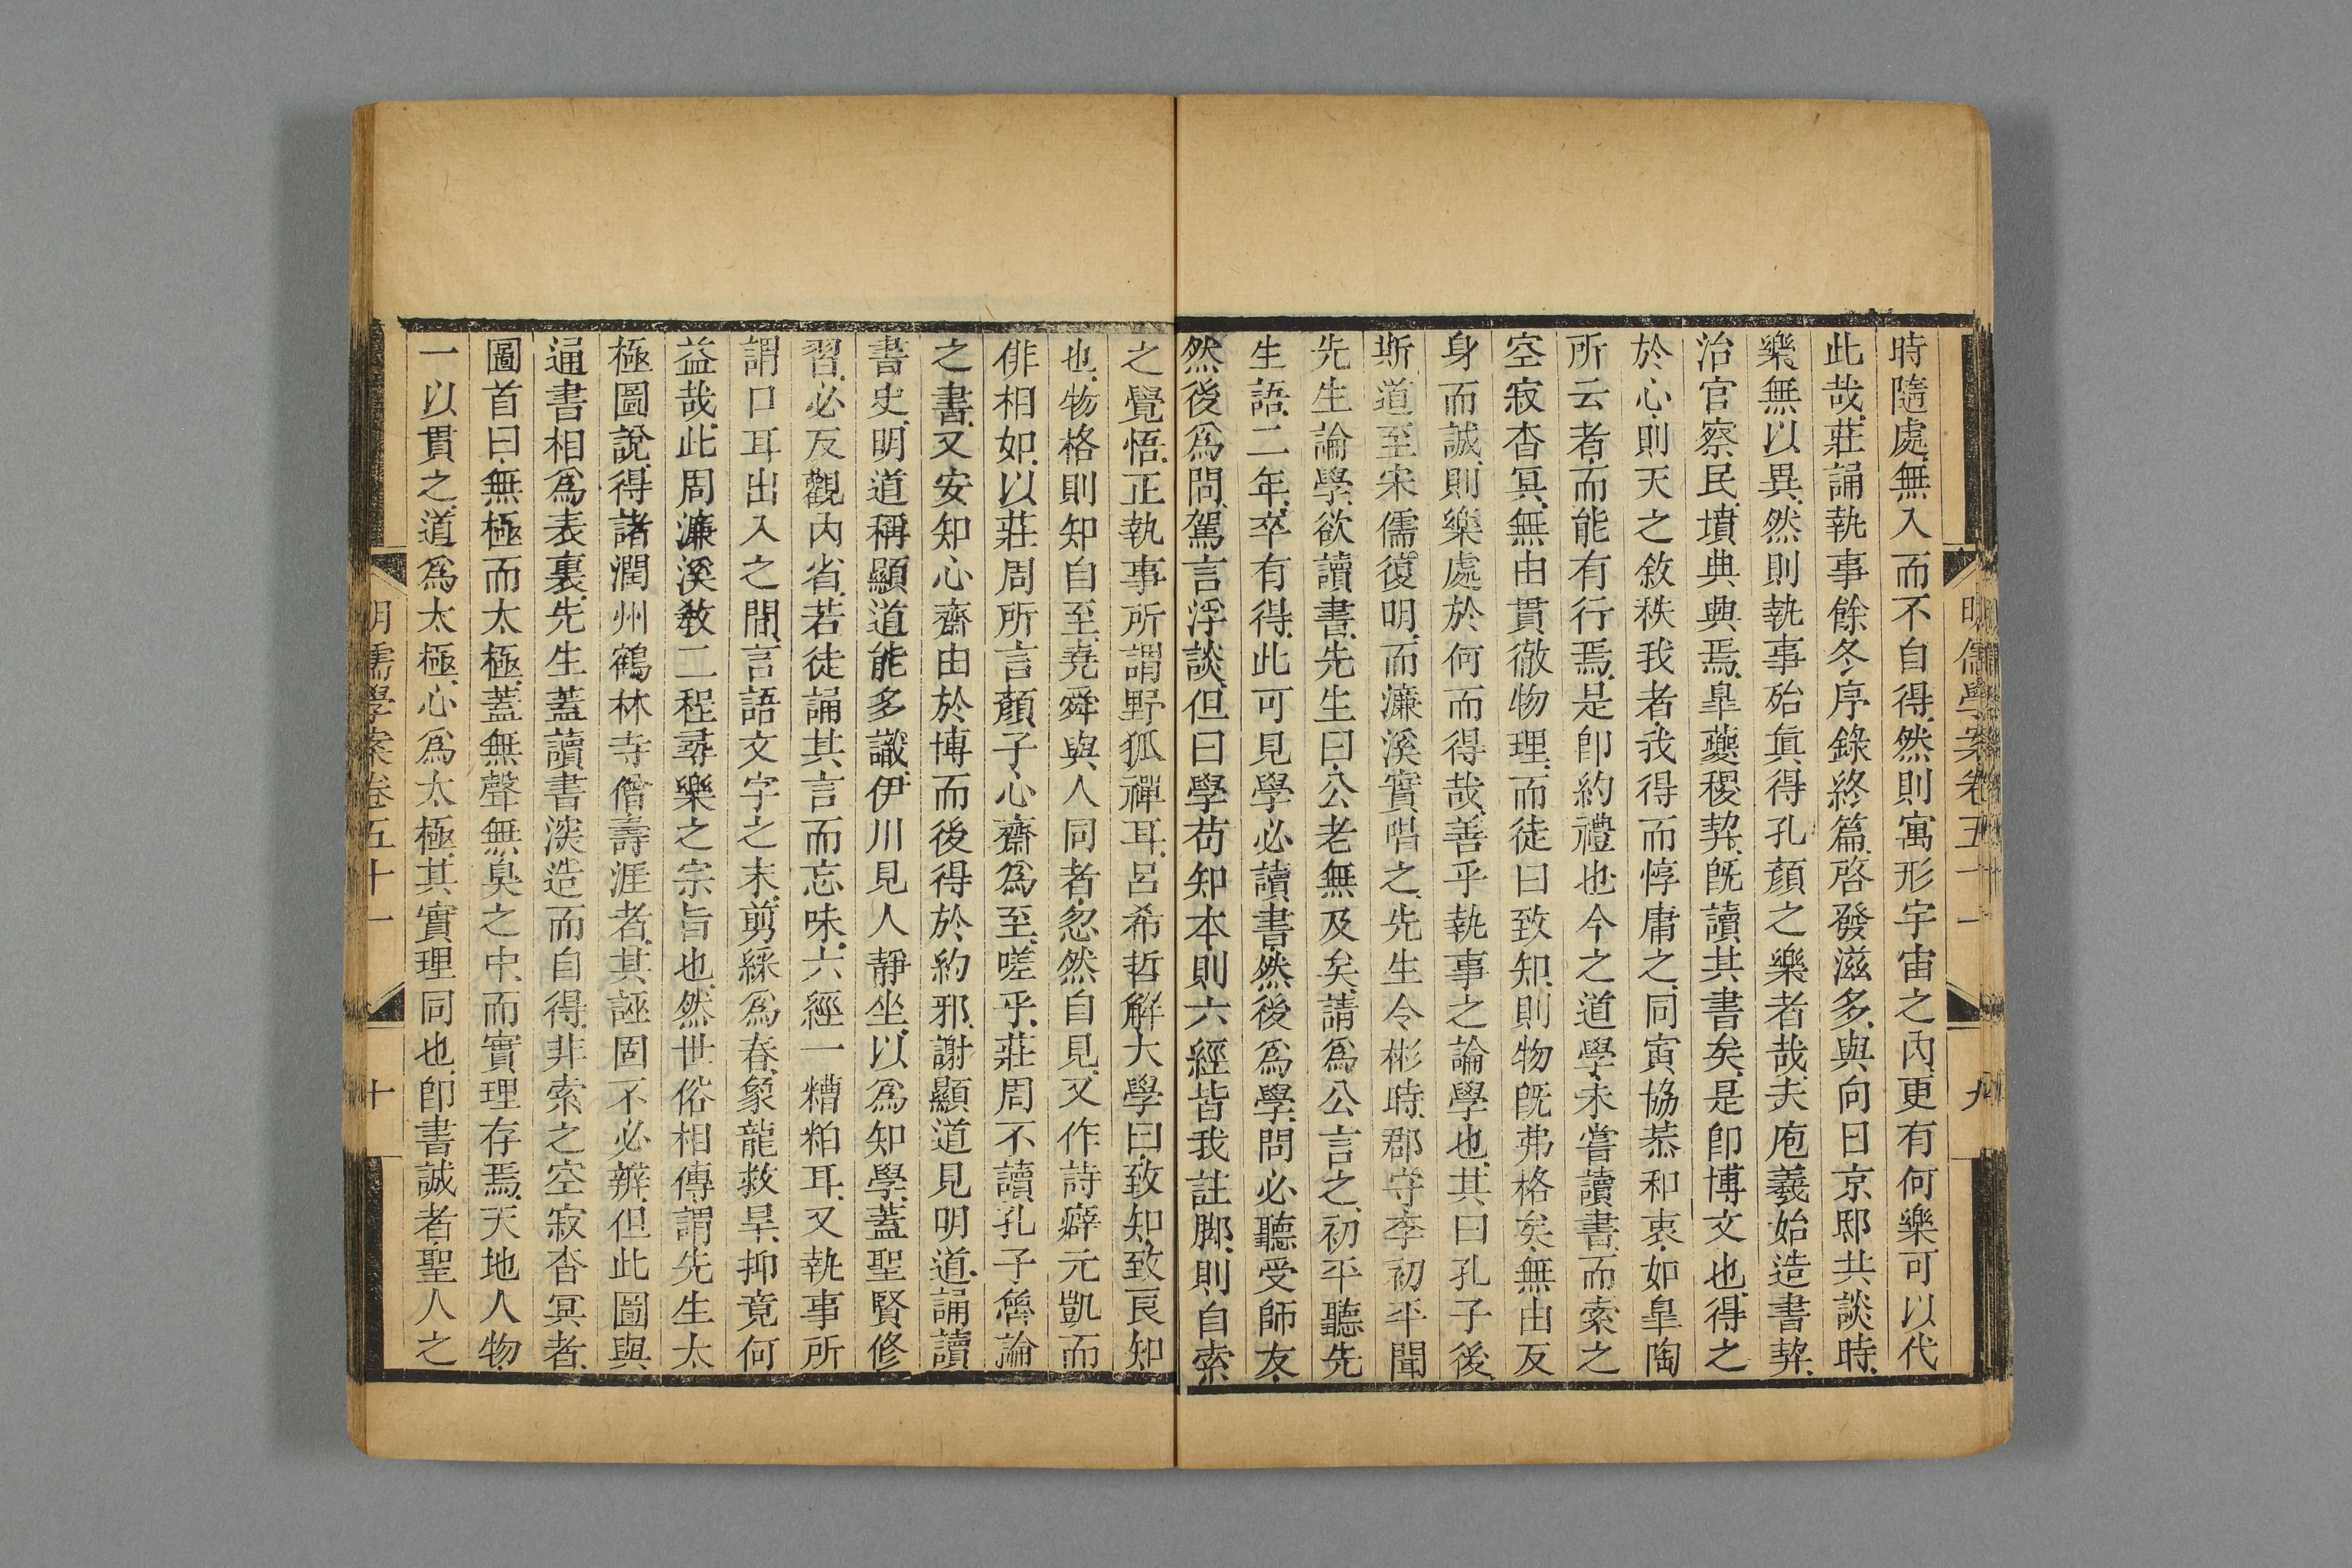 明儒學案卷五十一
九
時隨處、無入而不自得、然則寓形宇宙之内、更有何樂可以代
此哉、莊誦執事餘冬序錄終篇、啓發滋多、與向日京邸共談時、
樂無以異、然則執事殆眞得孔顏之樂者哉、夫庖羲始造書契、
治官察民、墳典興焉、皐夔稷契、旣讀其書矣、是卽博文也、得之
於心、則天之敘秩我者、我得而惇庸之、同寅協恭和衷、如皐陶
所云者、而能有行焉、是卽約禮也、今之道學、未嘗讀書、而索之
空寂杳冥、無由貫徹物理、而徒曰致知、則物旣弗格矣、無由反
身而誠、則樂處於何而得哉、善乎執事之論學也、其曰孔子後、
斯道至宋儒復明、而濂溪實唱之、先生令彬時、郡守李初平聞
先生論學、欲讀書、先生曰、公老無及矣、請爲公言之、初平聽先
生語、二年、卒有得、此可見學必讀書、然後爲學、問必聽受師友、
然後爲問、駕言浮談、但曰學苟知本、則六經皆我註脚、則自索
之覺悟、正執事所謂野狐禪耳、呂希哲解大學曰、致知、致良知
也、物格則知自至、堯舜與人同者、忽然自見、又作詩癖元凱而
俳相如、以莊周所言顏子心齋爲至、嗟乎、莊周不讀孔子魯論
之書、又安知心齋由於博而後得於約邪、謝顯道見明道、誦讀
書史、明道稱顯道能多識、伊川見人靜坐、以爲知學、蓋聖賢修
習、必反觀内省、若徒誦其言而忘味、六經一糟粕耳、又執事所
謂口耳出入之間、言語文字之末、剪綵爲春、象龍救旱、抑竟何
益哉、此周濂溪敎二程尋樂之宗旨也、然世俗相傳、謂先生太
極圖說、得諸潤州鶴林寺僧壽涯者、其誣固不必辨、但此圖與
通書相爲表裏、先生蓋讀書深造而自得、非索之空寂杳冥者、
圖首曰、無極而太極、蓋無聲無臭之中、而實理存焉、天地人物、
一以貫之、道爲太極、心爲太極、其實理同也、卽書誠者聖人之
明儒學案卷五十一
十